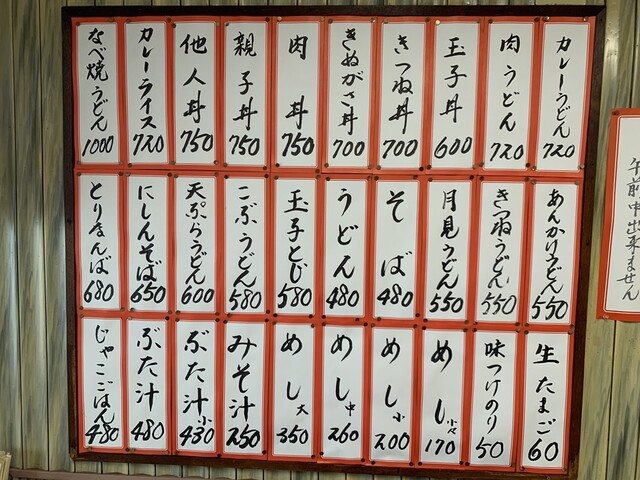 カレーうどん 720
肉うどん 720
玉子丼 600
きつね丼 700
きぬがさ丼 700
肉丼 750
親子丼 750
他人丼 750
カレーライス 720
なべ焼うどん 1000
あんかけうどん 550
きつねうどん 550
月見うどん 550
そば 480
うどん 480
玉子とじ 580
こぶうどん 580
天ぷらうどん 600
にしんそば 650
とりなんば 680
生たまご 60
味つけのり 50
めし小々 170
めし小 200
めし中 260
めし大 350
みそ汁 250
ぶた汁小 430
ぶた汁 480
じゃこごはん 480
午前中出来ません